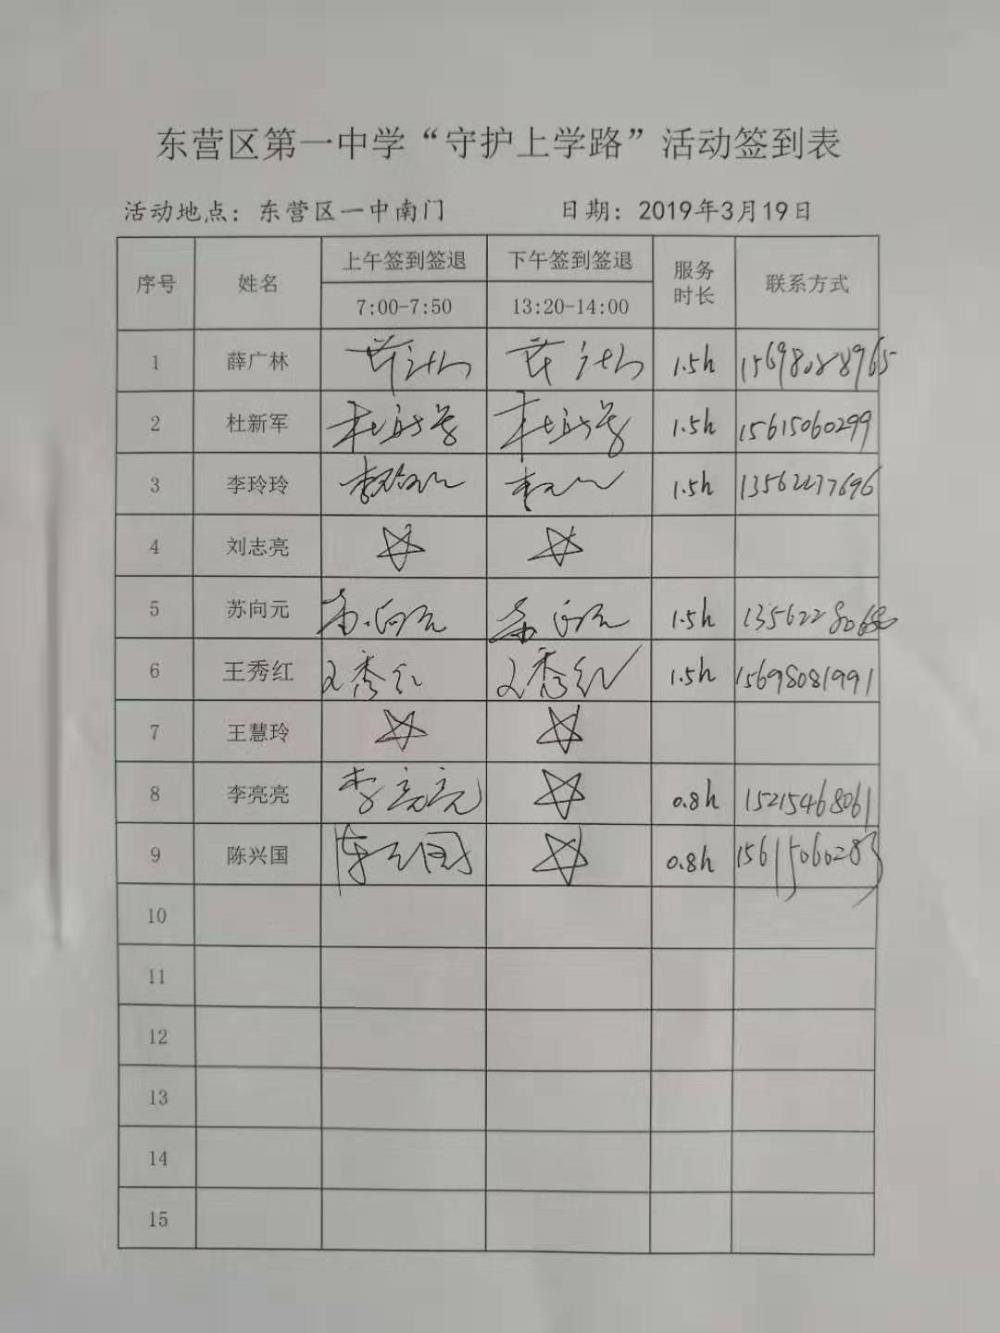 东营区第一中学“守护上学路”活动签到表
活动地点：东营区一中南门 日期：2019年3月19日
序号 姓名 上午签到签退 下午签到签退 服务时长 联系方式
7:00-7:50 13:20-14:00
1 薛广林 1.5h 15698088965
2 杜新军 杜新军 杜新军 1.5h 15615060299
3 李玲玲 1.5h 13562277696
4 刘志亮 ☆ ☆
5 苏向元 苏向元 苏向元 1.5h
6 王秀红 王秀红 王秀红 1.5h 15698081991
7 王慧玲 ☆ ☆
8 李亮亮 李亮亮 ☆ 0.8h 15215468061
9 陈兴国 陈兴国 ☆ 0.8h 15615060283
10
11
12
13
14
15